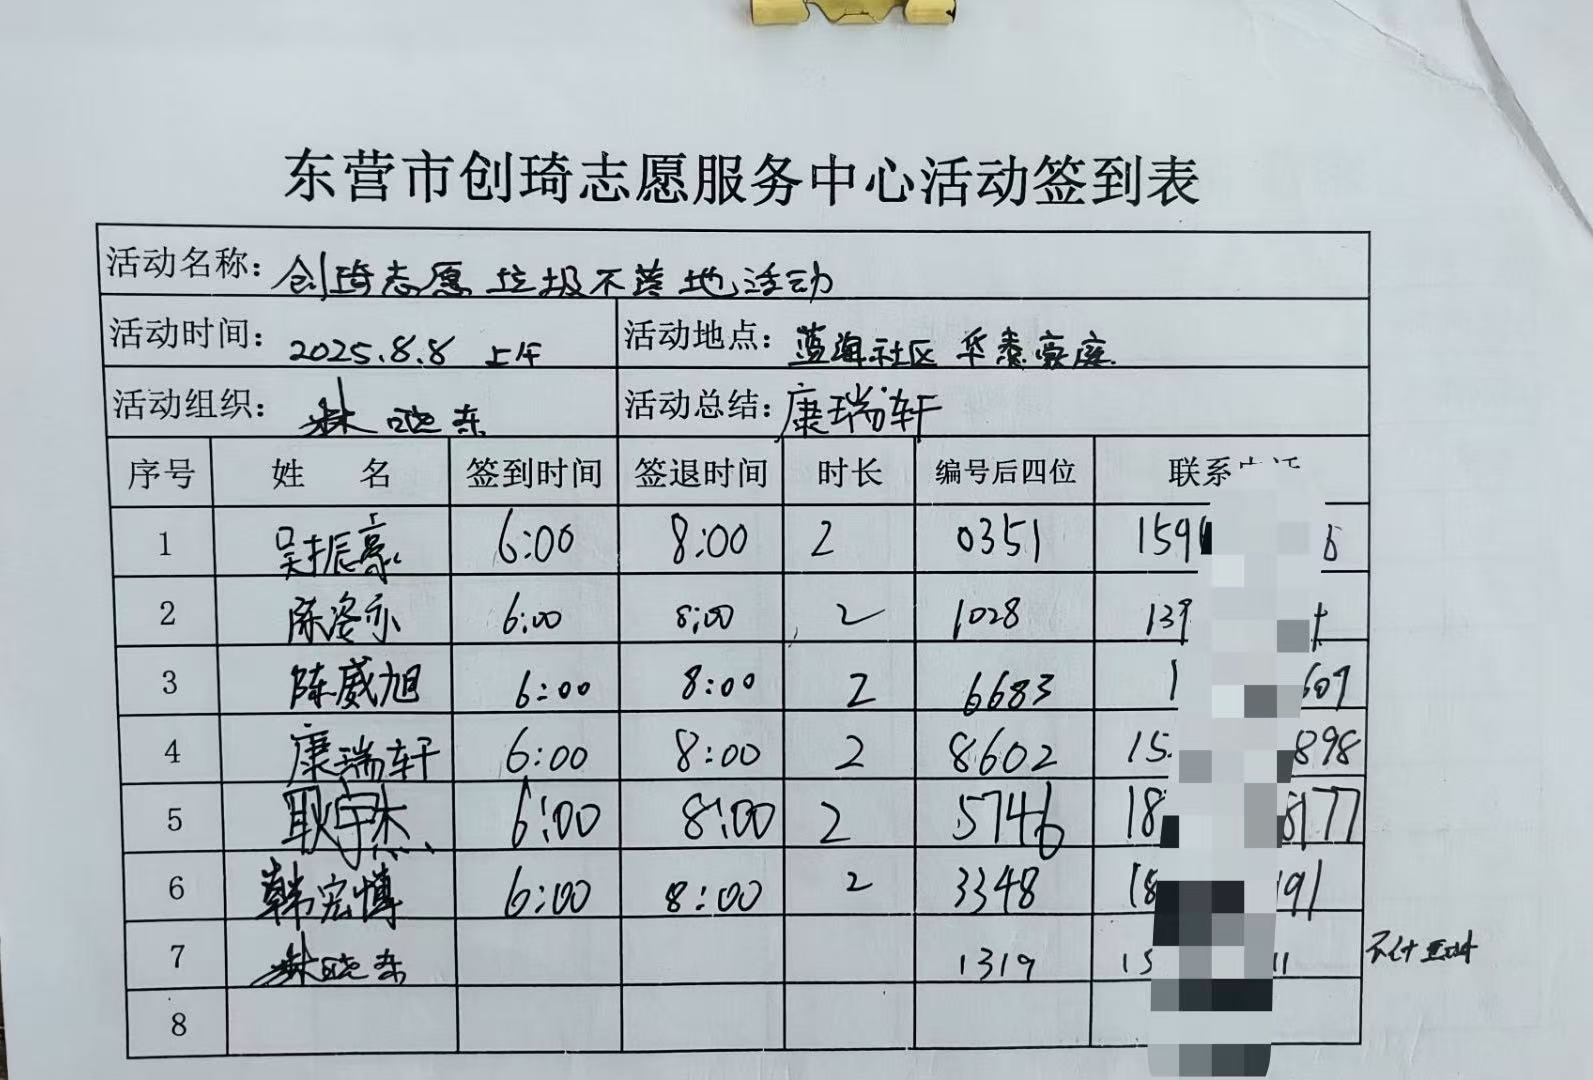 东营市创琦志愿服务中心活动签到表
活动名称：创琦志愿垃圾不落地活动
活动时间：2025.8.8 上午 活动地点：蓝海社区 华泰豪庭
活动组织：林晓东 活动总结：康瑞轩
序号 姓 名 签到时间 签退时间 时长 编号后四位 联系
1 吴振豪 6:00 8:00 2 0351 159 6
2 陈姿亦 6:00 8:00 2 1028 139
3 陈威旭 6:00 8:00 2 6683 1 609
4 康瑞轩 6:00 8:00 2 8602 15 898
5 耿宇杰 6:00 8:00 2 5746 18 8177
6 韩宏慎 6:00 8:00 2 3348 18 191
7 林晓东 1319 15 11 不计
8